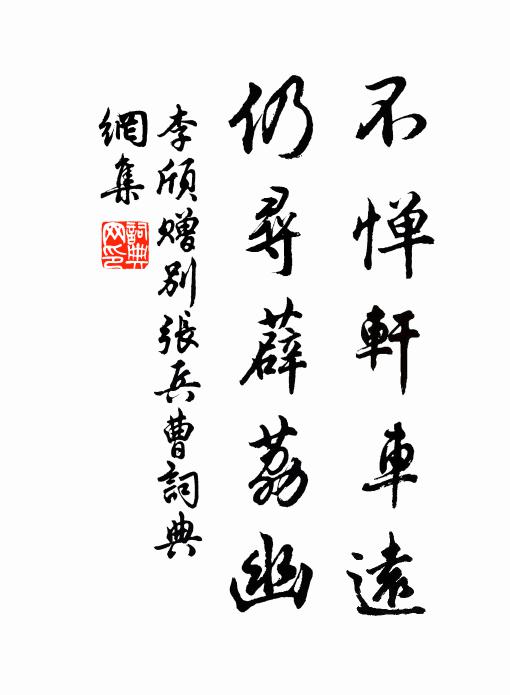 不憚軒車遠
仍尋薜荔幽
李頎赠别張兵曹詞典
網集
詞典
网印